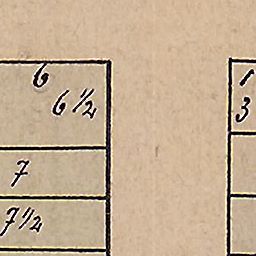 6
6 1/2
7
7 1/2
1
3